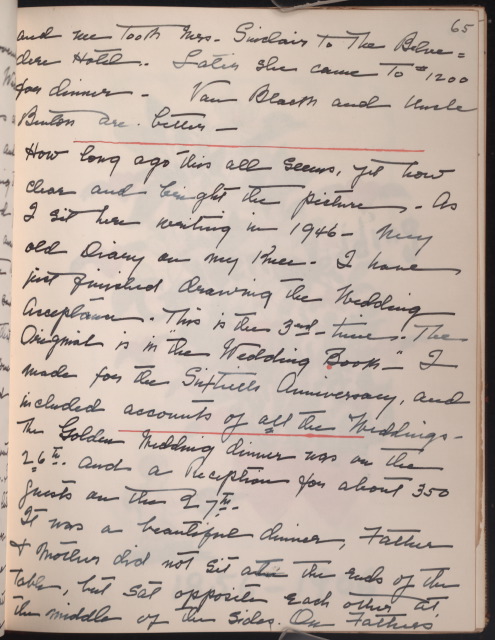 65
and me Took Mrs. Sinclair To The Belve=
dere Hotel. Later she came To #1200
for dinner - Van Black and Uncle
Benton are better -
How long ago this all seems, yet how
clear and bright the pictures. As
I sit here writing in 1946 - my
old Diary on my Knee. I have
just finished drawing the Wedding
Acceptance. This is the 3rd time. The
Original is in the "Wedding Book" - I
made for the Sixtieth Anniversary, and
included accounts of all the Weddings -
The Golden Wedding dinner was on the
26th. and a Reception for about 350
guests on the 27th.
It was a beautiful dinner, Father
& Mother did not sit at the ends of the
Table, but sat opposite each other at
the middle of the sides. On Fathers